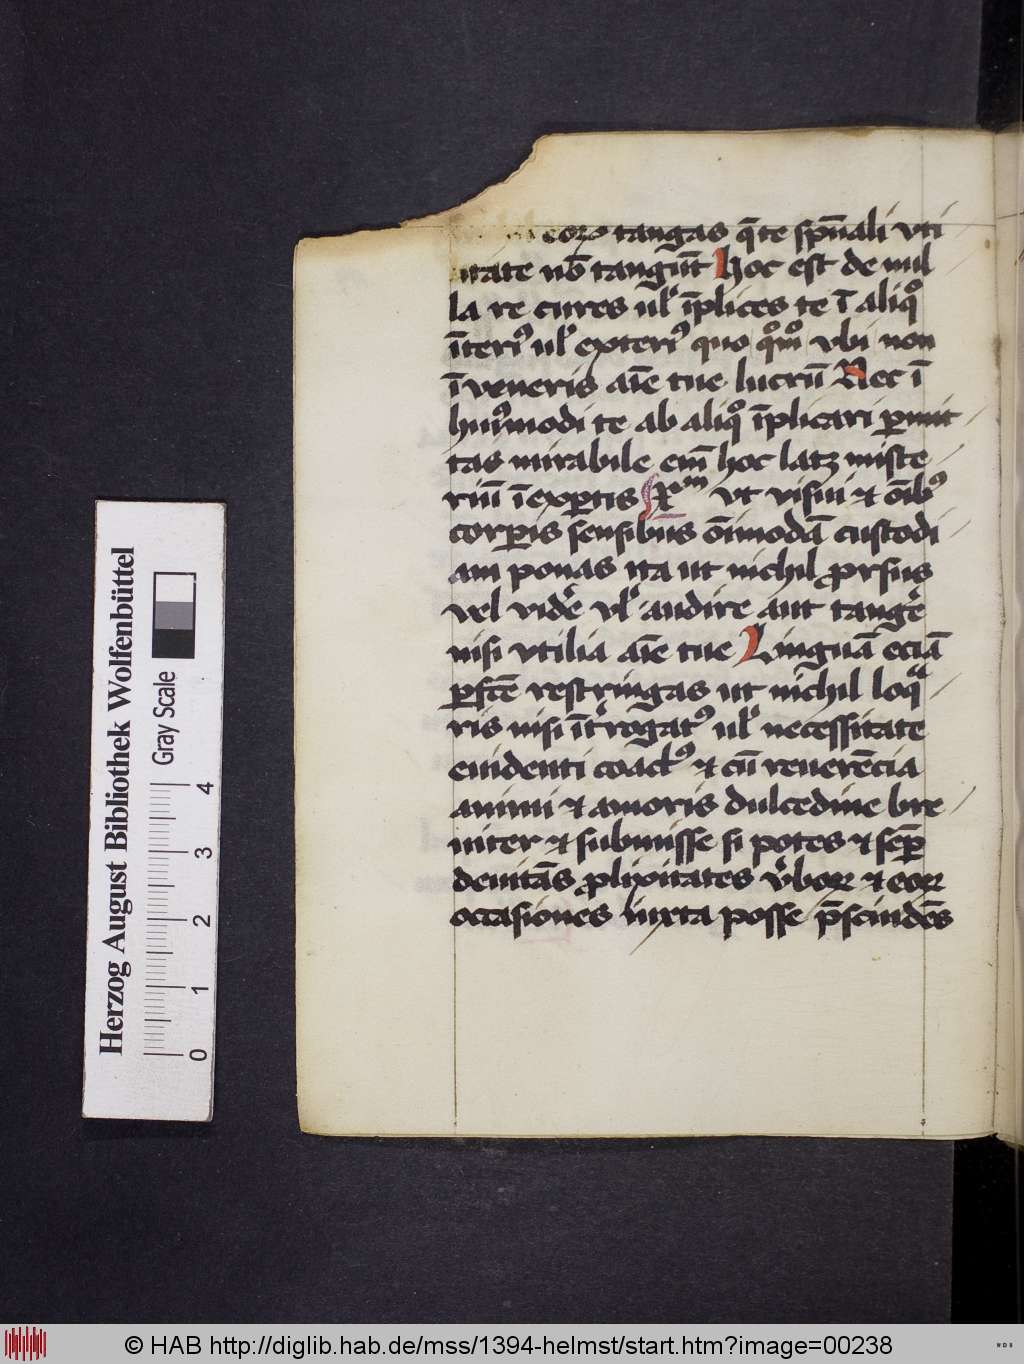 coro tangas q̄ te sp̄nali vti
itate nō tangūt hoc est de nul
la re cures ul' īplices te ī aliqͦ
īteri' ul' exteri' quo qͦmͦ vbi non
īveneris aīe tue lucrū Nec ī
hui'modi te ab aliqͦ īplicari ꝑmit
tas mirabile em̄ hoc latꝫ miste
riū īexꝑtis X̅m vt visui ⁊ oīb'
corꝑis sensibus oīmodā custodi
am ponas ita ut nichil ꝓrsus
vel videꝛ̄ vl' audire aut tangeꝛ̄
nisi vtilia aīe tue Linguā eciā
ꝑfcē restringas ut nichil loqͣ
ris nisi īt'rogat' ul' necessitate
euidenti coact' ⁊ cū reuerēcia
animi ⁊ amoris dulcedine bre
uiter ⁊ submisse si potes ⁊ semꝑ
deuitās ꝓlixitates v'boꝝ ⁊ eoꝝ
occasiones iuxta posse p̄scindēs
Herzog August Bibliothek Wolfenbüttel
Gray Scale
0 1 2 3 4
© HAB http://diglib.hab.de/mss/1394-helmst/start.htm?image=00238